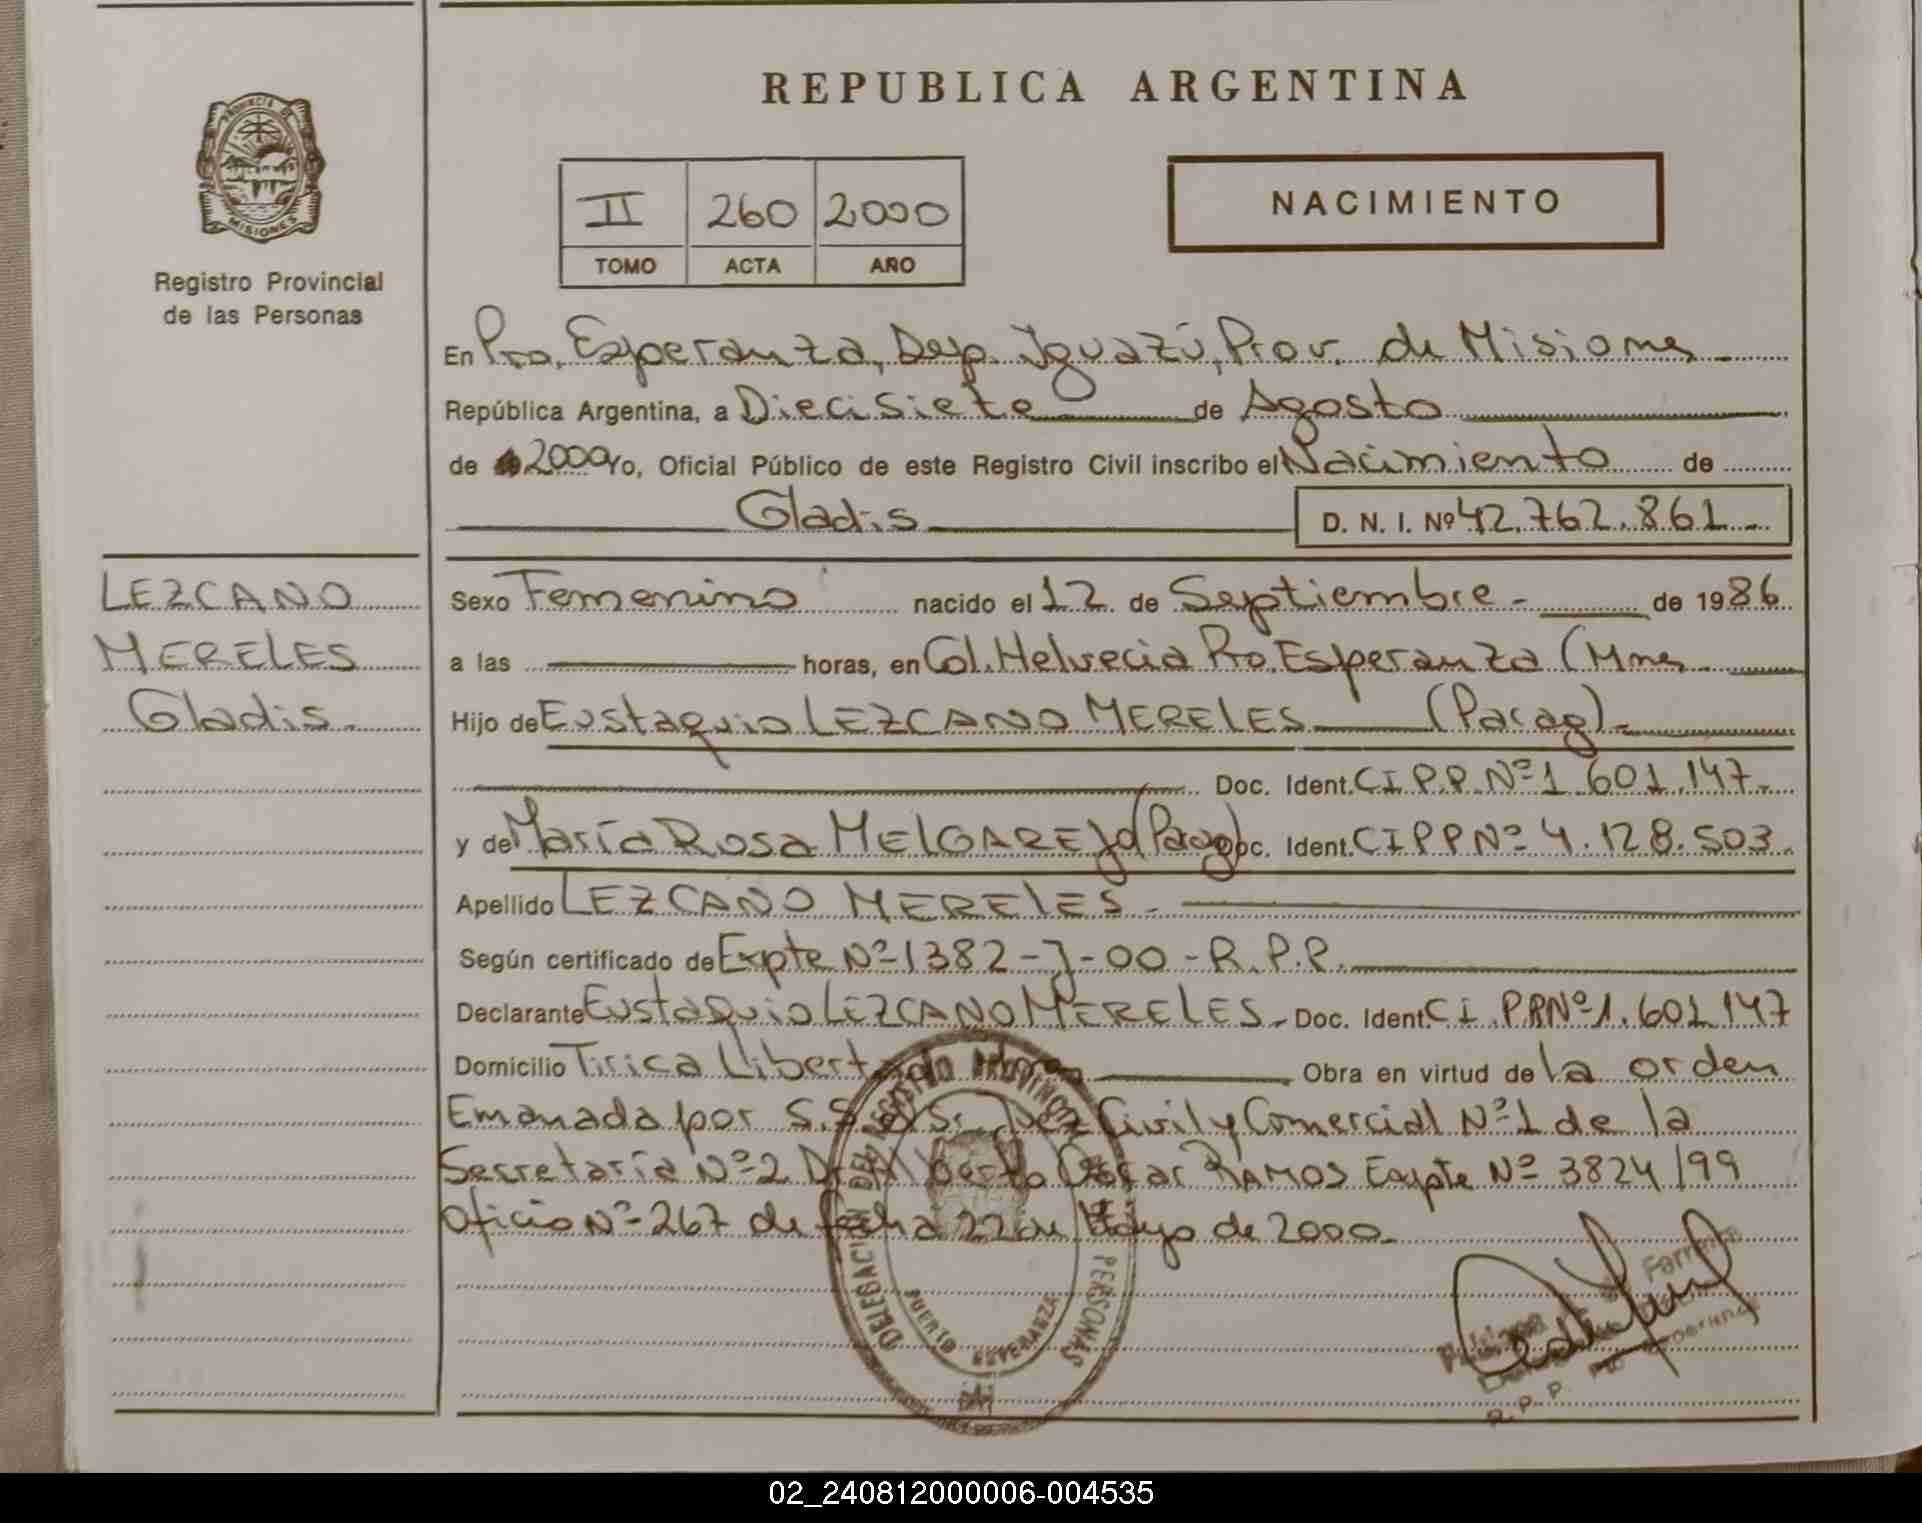 REPUBLICA ARGENTINA
PROVINCIA DE
MISIONES
Registro Provincial
de las Personas
II 260 2000
TOMO ACTA AÑO
NACIMIENTO
En Pto. Esperanza, Dep. Iguazú, Prov. de Misiones
República Argentina, a Diecisiete de Agosto
de 2000 Yo, Oficial Público de este Registro Civil inscribo el Nacimiento de
Gladis D. N. I. Nº 42.762.861
LEZCANO
MERELES
Gladis.
Sexo Femenino nacido el 12 de Septiembre - de 1986
a las horas, en Col. Helvecia Pto. Esperanza (Mnes
Hijo de Eustaquio LEZCANO MERELES (Parag).
Doc. Ident. C I. P. P. Nº 1.601.147.
y de María Rosa MELGAREJO (Parag) Doc. Ident. C I P P Nº 4.128.503.
Apellido LEZCANO MERELES.
Según certificado de Expte Nº 1382-J-00-R.P.P.
Declarante Eustaquio LEZCANO MERELES. Doc. Ident. C I. P.P Nº 1.601.147
Domicilio Tirica Libertad Obra en virtud de la orden
Emanada por S.S. Sr. Juez Civil y Comercial Nº 1 de la
Secretaría Nº 2 Dr. Alberto Oscar RAMOS Expte Nº 3824/99
Oficio Nº 267 de fecha 22 de Mayo de 2000.
DELEGACION DEL REGISTRO PROVINCIAL PERSONAS
PUERTO ESPERANZA
R. P. P.
02_240812000006-004535